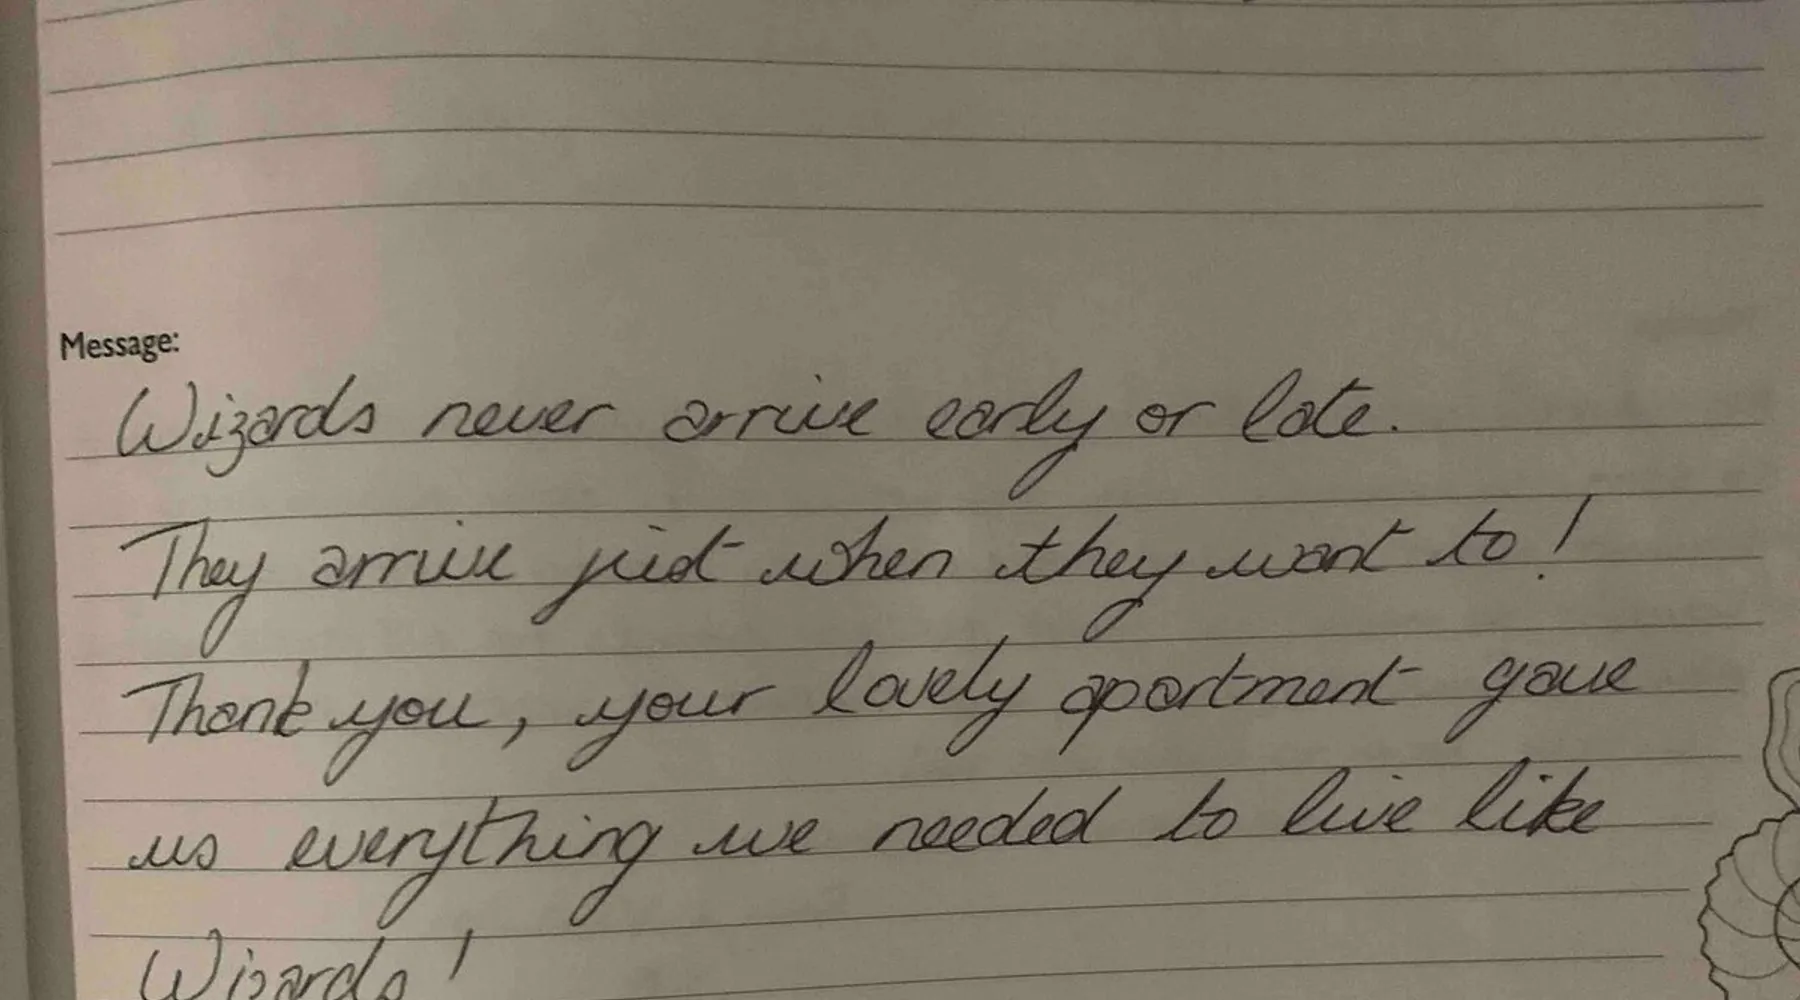 Message:
Wizards never arrive early or late.
They arrive just when they want to!
Thank you, your lovely apartment gave
us everything we needed to live like
Wizards!